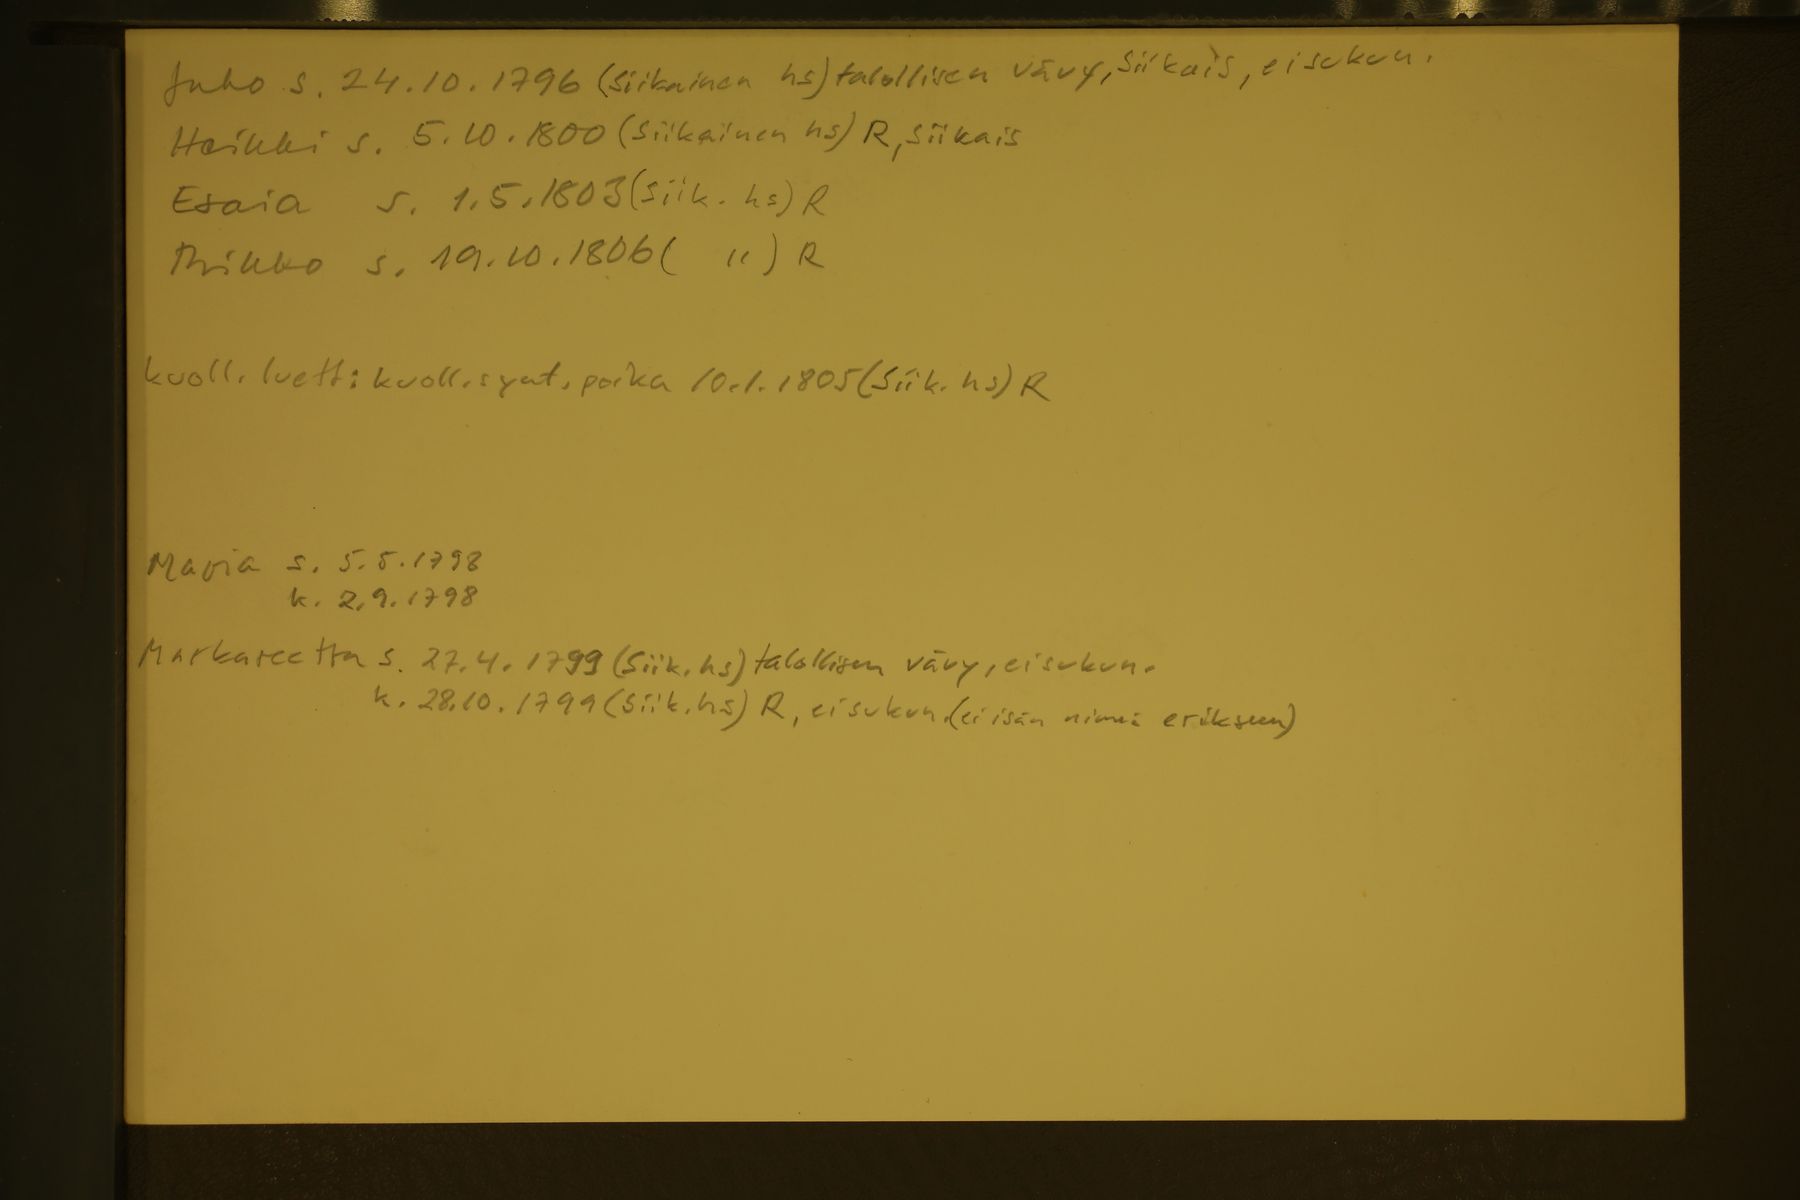 Juho s. 24.10.1796 (Siikainen hs) talollisen vävy, Siikais, ei sukun.
Heikki s. 5.10.1800 (Siikainen hs) R, Siikais
Esaia s. 1.5.1803 (Siik. hs) R
Mikko s. 19.10.1806 ( " ) R
kuoll. luett: kuoll.synt. poika 10.1.1805 (Siik. hs) R
Maria s. 5.5.1798
k. 2.9.1798
Markareetta s. 27.4.1799 (Siik. hs) talollisen vävy, ei sukun.
k. 28.10.1799 (Siik. hs) R, ei sukun. (ei isän nimeä erikseen)